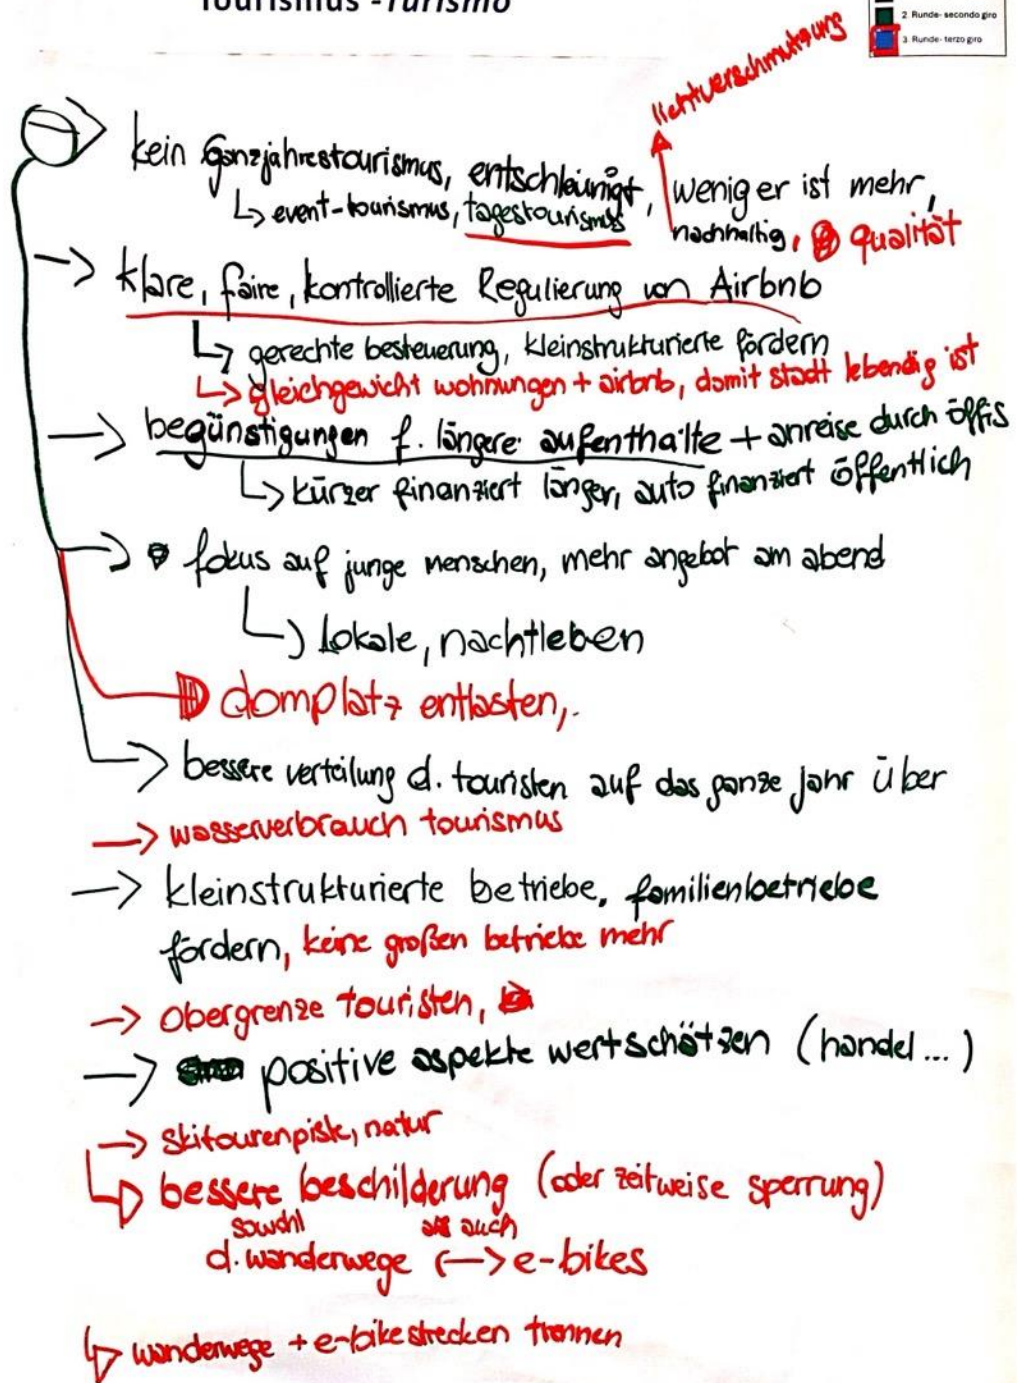 Tourismus -Turismo
2. Runde- secondo giro
3. Runde- terzo giro
lichtverschmutzung
kein ganzjahrestourismus, entschleunigt, weniger ist mehr,
↳ event-tourismus, tagestourismus nachhaltig, qualität
→ klare, faire, kontrollierte Regulierung von Airbnb
↳ gerechte besteuerung, kleinstrukturierte fördern
↳ gleichgewicht wohnungen + airbnb, damit stadt lebendig ist
→ begünstigungen f. längere aufenthalte + anreise durch öffis
↳ kürzer finanziert länger, auto finanziert öffentlich
→ fokus auf junge menschen, mehr angebot am abend
↳ lokale, nachtleben
domplatz entlasten,.
→ bessere verteilung d. touristen auf das ganze jahr über
→ wasserverbrauch tourismus
→ kleinstrukturierte betriebe, familienbetriebe
fördern, keine großen betriebe mehr
→ obergrenze touristen,
→ positive aspekte wertschätzen (handel...)
→ skitourenpiste, natur
↳ bessere beschilderung (oder zeitweise sperrung)
sowohl als auch
d. wanderwege <-> e-bikes
↳ wanderwege + e-bikestrecken trennen